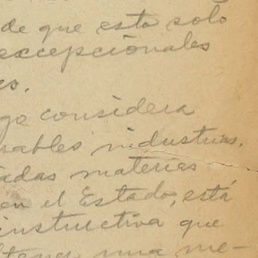 de que esta solo
excepcionales
os.
go considera
rables industrias,
adas materies
en el Estado, está
instructiva que
tener una me-